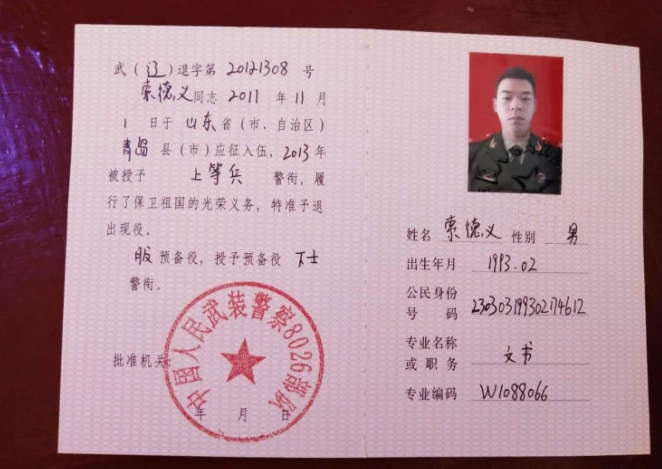 武（辽）退字第 20121308 号
索德义同志 2011 年 11 月
1 日于 山东 省（市、自治区）
青岛 县（市）应征入伍，2013 年
被授予 上等兵 警衔，履
行了保卫祖国的光荣义务，特准予退
出现役。
服 预备役，授予预备役 下士
警衔。
批准机关：
年 月 日
中国人民武装警察8026部队
姓名 索德义 性别 男
出生年月 1993.02
公民身份
号 码 230303199302174612
专业名称
或 职 务 文书
专业编码 W1088066